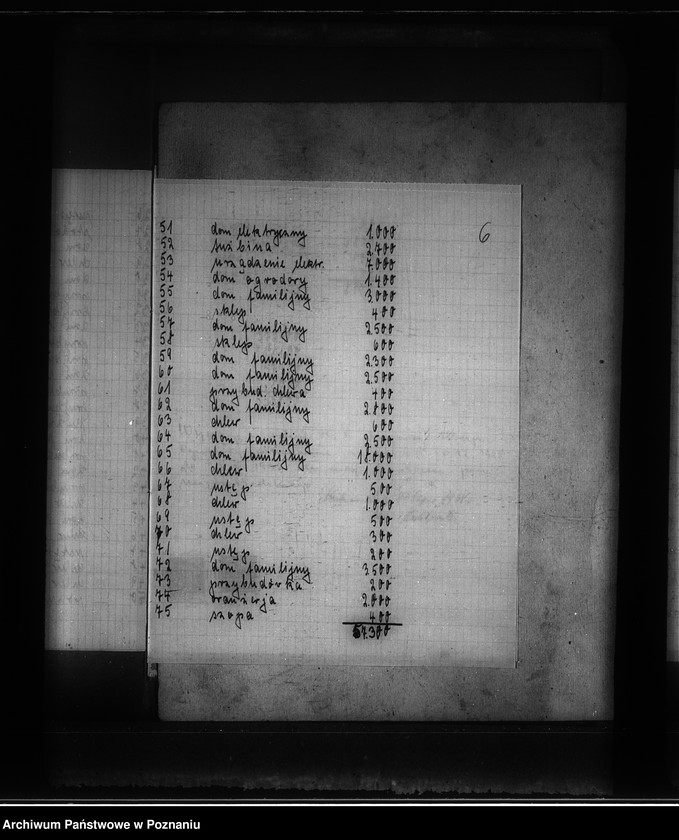 6
51 dom elektryczny 1.000
52 turbina 2.700
53 urządzenie elektr. 7.000
54 dom ogrodowy 1.400
55 dom familijny 3.000
56 sklep 400
57 dom familijny 2.500
58 sklep 600
59 dom familijny 2.300
60 dom familijny 2.500
61 przybud. chlewa 400
62 dom familijny 2.800
63 chlew 600
64 dom familijny 2.500
65 dom familijny 18.000
66 chlew 1.000
67 ustęp 500
68 chlew 1.000
69 ustęp 500
70 chlew 300
71 ustęp 200
72 dom familijny 3.500
73 przybudówka 200
74 oranżerja 2.000
75 szopa 400
57.300
Archiwum Państwowe w Poznaniu